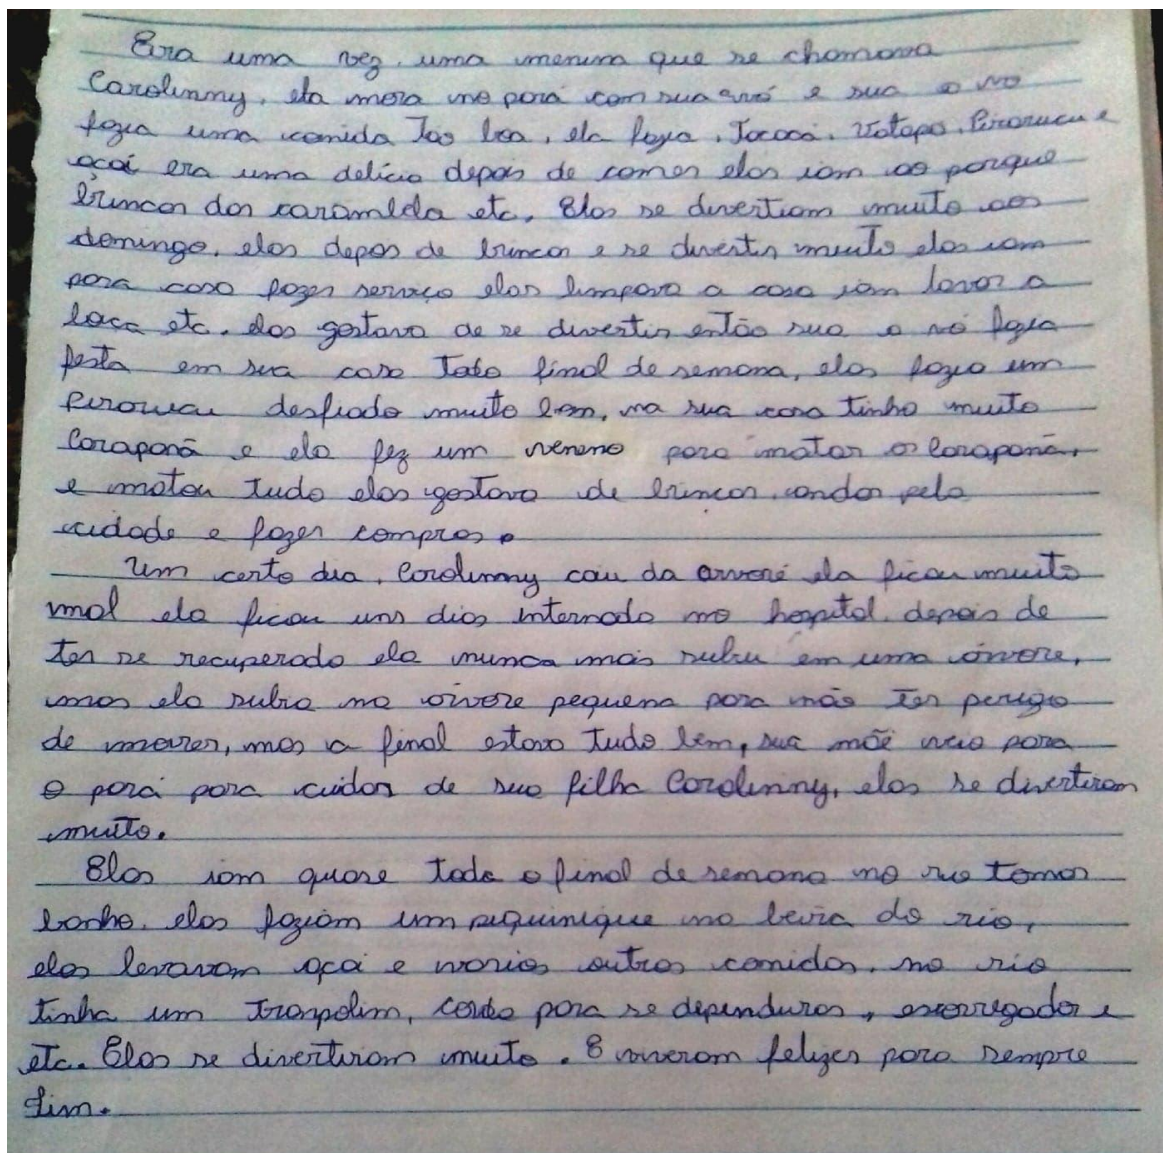 Era uma vez. uma menina que se chamava
Carolinny, ela mora no pará com sua avó e sua a vó
fazia uma comida tão boa, ela fazia, Tacacá, Vatapa, Pirarucu e
açaí era uma delícia depois de comer elas iam ao parque
brincar dar carambela etc, Elas se divertiam muito aos
domingo, elas depos de brincar e se divertir muito elas iam
para casa fazer serviço elas limpava a casa iam lavar a
loça etc. elas gostava de se divertir então sua a vó fazia
festa em sua casa todo final de semana, elas fazia um
Pirarucu desfiado muito bom, na sua casa tinha muito
Carapanã e ela fez um veneno para matar os Carapanã,
e matou tudo elas gostava de brincar, andar pela
cidade e fazer compras.
Um certo dia, Carolinny caiu da arvore ela ficou muito
mal ela ficou uns dias internada no hospital. depois de
ter se recuperado ela nunca mais subiu em uma árvore,
mas ela subia na árvore pequena para não ter perigo
de morrer, mas a final estava tudo bem, sua mãe veio para
o pará para cuidar de sua filha Carolinny, elas se divertiram
muito.
Elas iam quase todo o final de semana no rio tomar
banho, elas faziam um piquinique na beira do rio,
elas levavam açai e varias outras comidas, no rio
tinha um trampolim, corda para se dependurar, escorregador e
etc. Elas se divertiram muito. E viveram felizes para sempre
Fim.